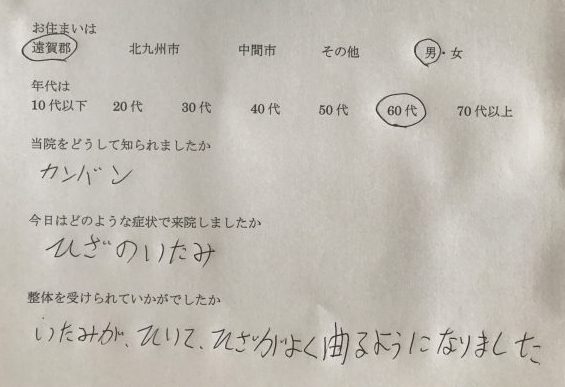 お住まいは
遠賀郡 北九州市 中間市 その他 男・女
年代は
10代以下 20代 30代 40代 50代 60代 70代以上
当院をどうして知られましたか
カンバン
今日はどのような症状で来院しましたか
ひざのいたみ
整体を受けられていかがでしたか
いたみが、ひいて、ひざがよく曲るようになりました